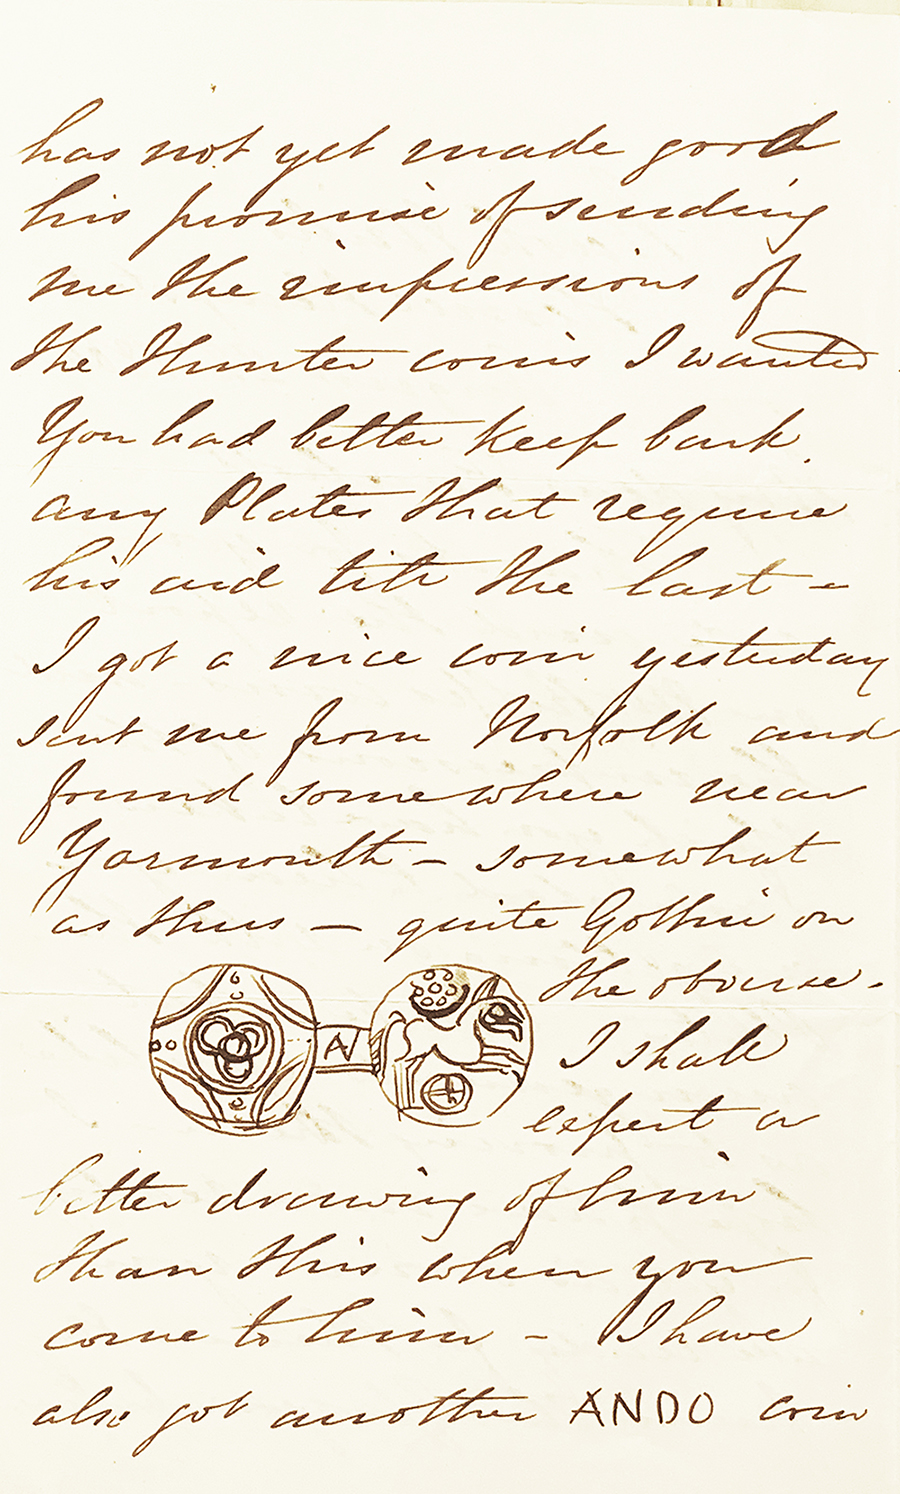 has not yet made good
his promise of sending
me the impressions of
the Hunter coins I wanted
You had better keep back
any Plates that require
his aid till the last –
I got a nice coin yesterday
sent me from Norfolk and
found somewhere near
Yarmouth – somewhat
as thus – quite Gothic on
the obverse.
AV
I shall
expect a
better drawing of him
than this when you
come to him – I have
also got another ANDO coin